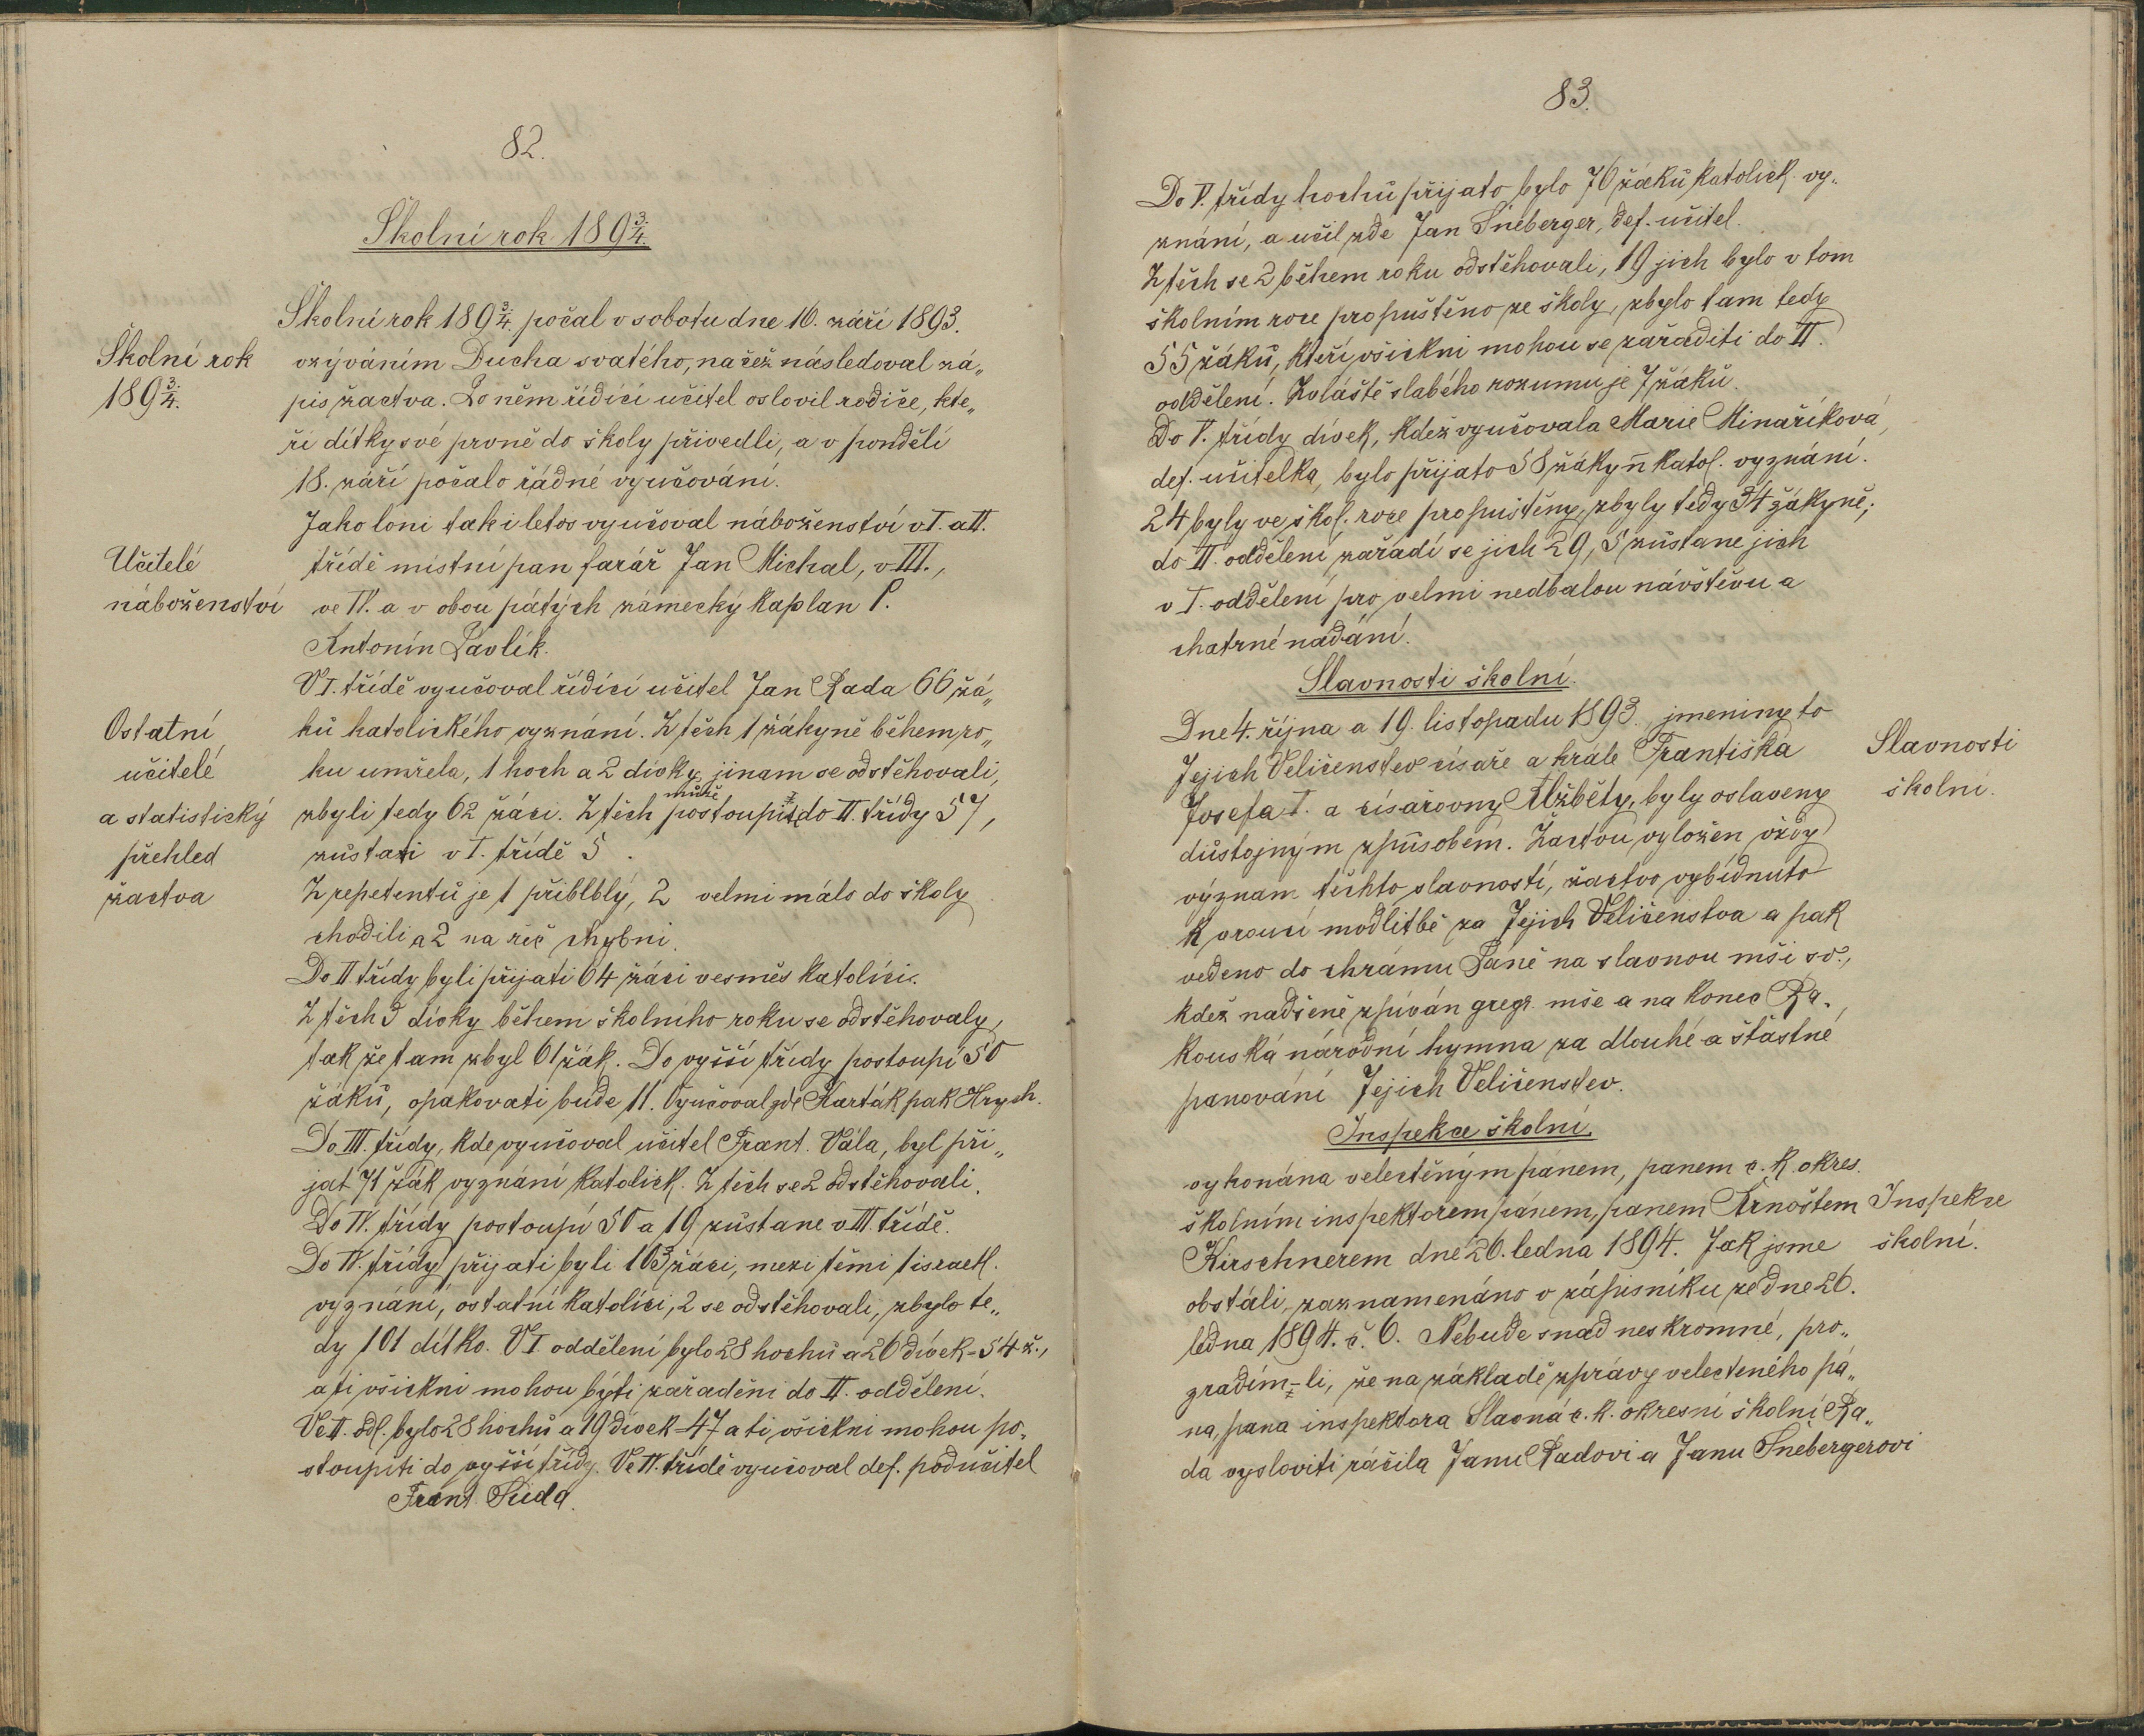 82.
Školní rok 1893/4.
Školní rok
1893/4.
Školní rok 1893/4. počal v sobotu dne 16. září 1893.
vzýváním Ducha svatého, načež následoval zá„
pis žactva. Po něm řídící učitel oslovil rodiče, kte„
ří dítky své prvně do školy přivedli, a v pondělí
18. září počalo řádné vyučování.
Učitelé
náboženství
Jako loni tak i letos vyučoval náboženství v I. a II.
třídě místní pan farář Jan Michal, v III.,
ve IV. a v obou pátých zámecký kaplan P.
Antonín Pavlík.
Ostatní
učitelé
a statistický
přehled
žactva
V I. třídě vyučoval řídící učitel Jan Rada 66 žá„
ků katolického vyznání. Z těch 1 žákyně během ro„
ku umřela, 1 hoch a 2 dívky jinam se odstěhovali,
zbyli tedy 62 žáci. Z těch může postoupiti do II. třídy 57,
zůstati v I. třídě 5.
Z repetentů je 1 přiblblý, 2 velmi málo do školy
chodili a 2 na řeč chybni.
Do II třídy byli přijati 64 žáci vesměs katolíci.
Z těch 3 dívky během školního roku se odstěhovaly,
tak že tam zbyl 61 žák. Do vyšší třídy postoupí 50
žáků, opakovati bude 11. Vyučoval zde Karták pak Hrych.
Do III. třídy, kde vyučoval učitel Frant. Vála, byl při„
jat 71 žák vyznání katolick. Z těch se 2 odstěhovali.
Do IV. třídy postoupí 50 a 19 zůstane v III. třídě.
Do IV. třídy přijati byli 103 žáci, mezi těmi 1 israel.
vyznání, ostatní katolíci, 2 se odstěhovali, zbylo te„
dy 101 dítko. V I. oddělení bylo 28 hochů a 26 dívek = 54 ž.,
a ti všickni mohou býti zařaděni do II. oddělení.
Ve II. odd. bylo 28 hochů a 19 dívek = 47 a ti všickni mohou po„
stoupiti do vyšší třídy. Ve IV. třídě vyučoval def. podučitel
Frant. Suda.
83.
Do V. třídy hochů přijato bylo 76 žáků katolick. vy„
znání, a učil zde Jan Šneberger, def. učitel.
Z těch se 2 během roku odstěhovali, 19 jich bylo v tom
školním roce propuštěno ze školy, zbylo tam tedy
55 žáků, kteří všickni mohou se zařaditi do II.
oddělení. Zvláště slabého rozumu je 7 žáků.
Do V. třídy dívek, kdež vyučovala Marie Minaříková,
def. učitelka, bylo přijato 58 žákyň katol. vyznání.
24 byly ve škol. roce propuštěny, zbyly tedy 34 žákyně;
do II. oddělení zařadí se jich 29, 5 zůstane jich
v I. oddělení pro velmi nedbalou návštěvu a
chatrné nadání.
Slavnosti školní.
Slavnosti
školní.
Dne 4. října a 19. listopadu 1893. jmeniny to
Jejich Veličenstev císaře a krále Františka
Josefa I. a císařovny Alžběty, byly oslaveny
důstojným způsobem. Žactvu vyložen vždy
význam těchto slavností, žactvo vybídnuto
k vroucí modlitbě za Jejich Veličenstva a pak
vedeno do chrámu Páně na slavnou mši sv.,
kdež nadšeně zpíván greg. mše a na konec Ra„
kouská národní hymna za dlouhé a šťastné
panování Jejich Veličenstev.
Inspekce školní.
Inspekce
školní.
vykonána velectěným pánem, panem c. k. okres.
školním inspektorem pánem, panem Arnoštem
Kirschnerem dne 26. ledna 1894. Jak jsme
obstáli, zaznamenáno v zápisníku ze dne 26.
ledna 1894. č. 6. Nebude snad neskromné, pro„
zradím-li, že na základě zprávy velectěného pá„
na, pana inspektora Slavná c. k. okresní školní Ra„
da vysloviti ráčila Janu Radovi a Janu Šnebergerovi